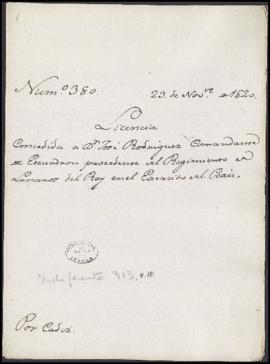 Num.º 380.
23. de Nov.re de 1820.
Licencia
Concedida a D.n José Rodriguez Comandante
de Escuadron procedente del Regimiento de
Lanceros del Rey en el Exercito del Perú.
SEVILLA
Indiferente 313,
Por Cadiz.